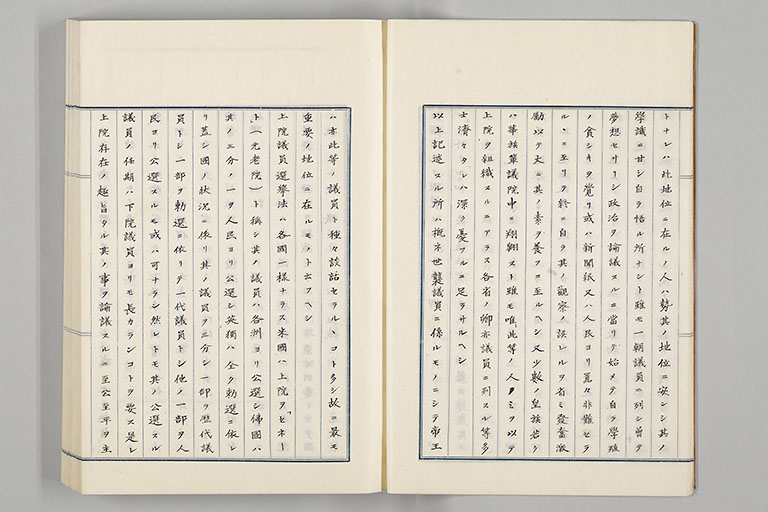 トナレハ此地位ニ在ルノ人ハ勢其ノ地位ニ安ンシ其ノ
學識ニ甘シ自ラ悟ル所ナシト雖モ一朝議員ニ列シ曾テ
夢想セサリシ政治ヲ論議スルニ當リテ始メテ自ラ學殖
ノ貪シキヲ覺リ或ハ新聞紙又ハ人民ヨリ囂々非難セラ
ルヽニ至リテ終ニ自ラ其ノ觀察ノ誤レルヲ省ミ發奮激
勵以テ大ニ其ノ素ヲ養フニ至ルヘシ又少數ノ皇族若ク
ハ華族輩議院中ニ翔翺スト雖モ唯此等ノ人ノミヲ以テ
上院ヲ組織スルニアラス各省ノ卿亦議員ニ列スル等多
士濟々タレハ深ク憂フルニ足ラサルヘシ
以上記述スル所ハ概ネ世襲議員ニ係ルモノニシテ帝王
ハ亦此等ノ議員ト種々談話セラルヽコト多シ故ニ最モ
重要ノ地位ニ在ルモノト云フヘシ
上院議員選擧法ハ各國一樣ナラス米國ハ上院ヲ「ゼネー
ト」(元老院)ト稱シ其ノ議員ハ各洲ヨリ公選シ佛國ハ
其ノ三分ノ一ヲ人民ヨリ公選シ英獨ハ全ク勅選ニ依レ
リ蓋シ國ノ狀況ニ依リ其ノ議員ヲ三分シ一部ヲ歷代議
員トシ一部ヲ勅選ニ依リテ一代議員トシ他ノ一部ヲ人
民ヨリ公選スルモ或ハ可ナラン然レトモ其ノ公選スル
議員ノ任期ハ下院議員ヨリモ長カランコトヲ要ス是レ
上院存在ノ趣旨タル其ノ事ヲ論議スルニ至公至平ヲ主